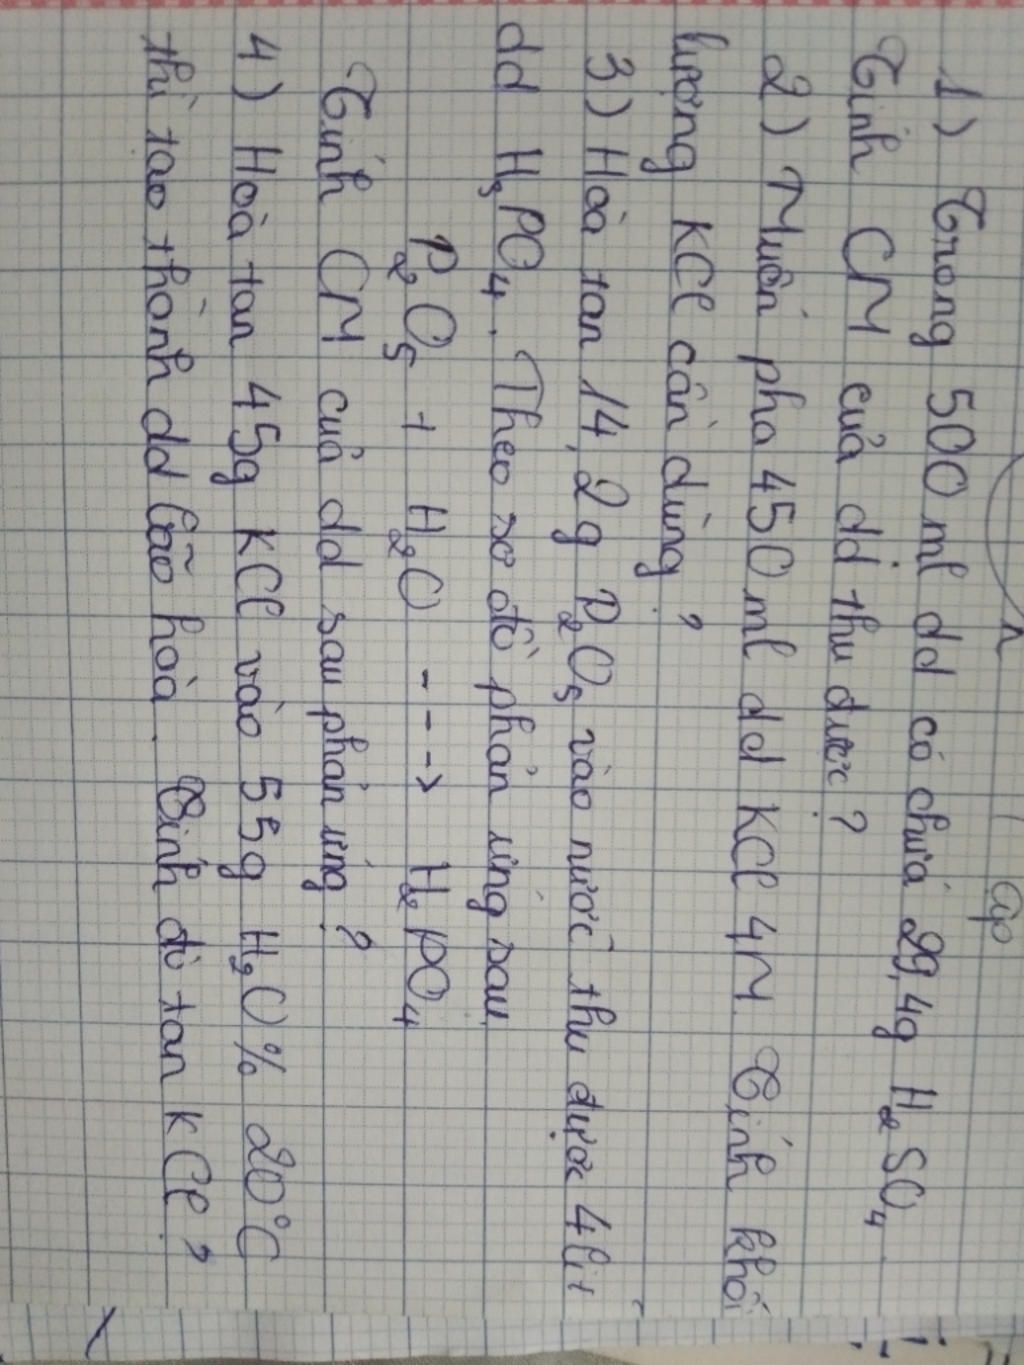 Cấp
1) Trong 500 ml dd có chứa 29,4g H₂SO₄.
Tính CM của dd thu được?
2) Muốn pha 450 ml dd KCl 4M. Tính khối
lượng KCl cần dùng?
3) Hoà tan 14,2g P₂O₅ vào nước thu được 4 lit
dd H₃PO₄. Theo sơ đồ phản ứng sau
P₂O₅ + H₂O ---> H₂PO₄
Tính CM của dd sau phản ứng?
4) Hoà tan 45g KCl vào 55g H₂O % 20°C
thì tạo thành dd bão hoà. Tính độ tan KCl?